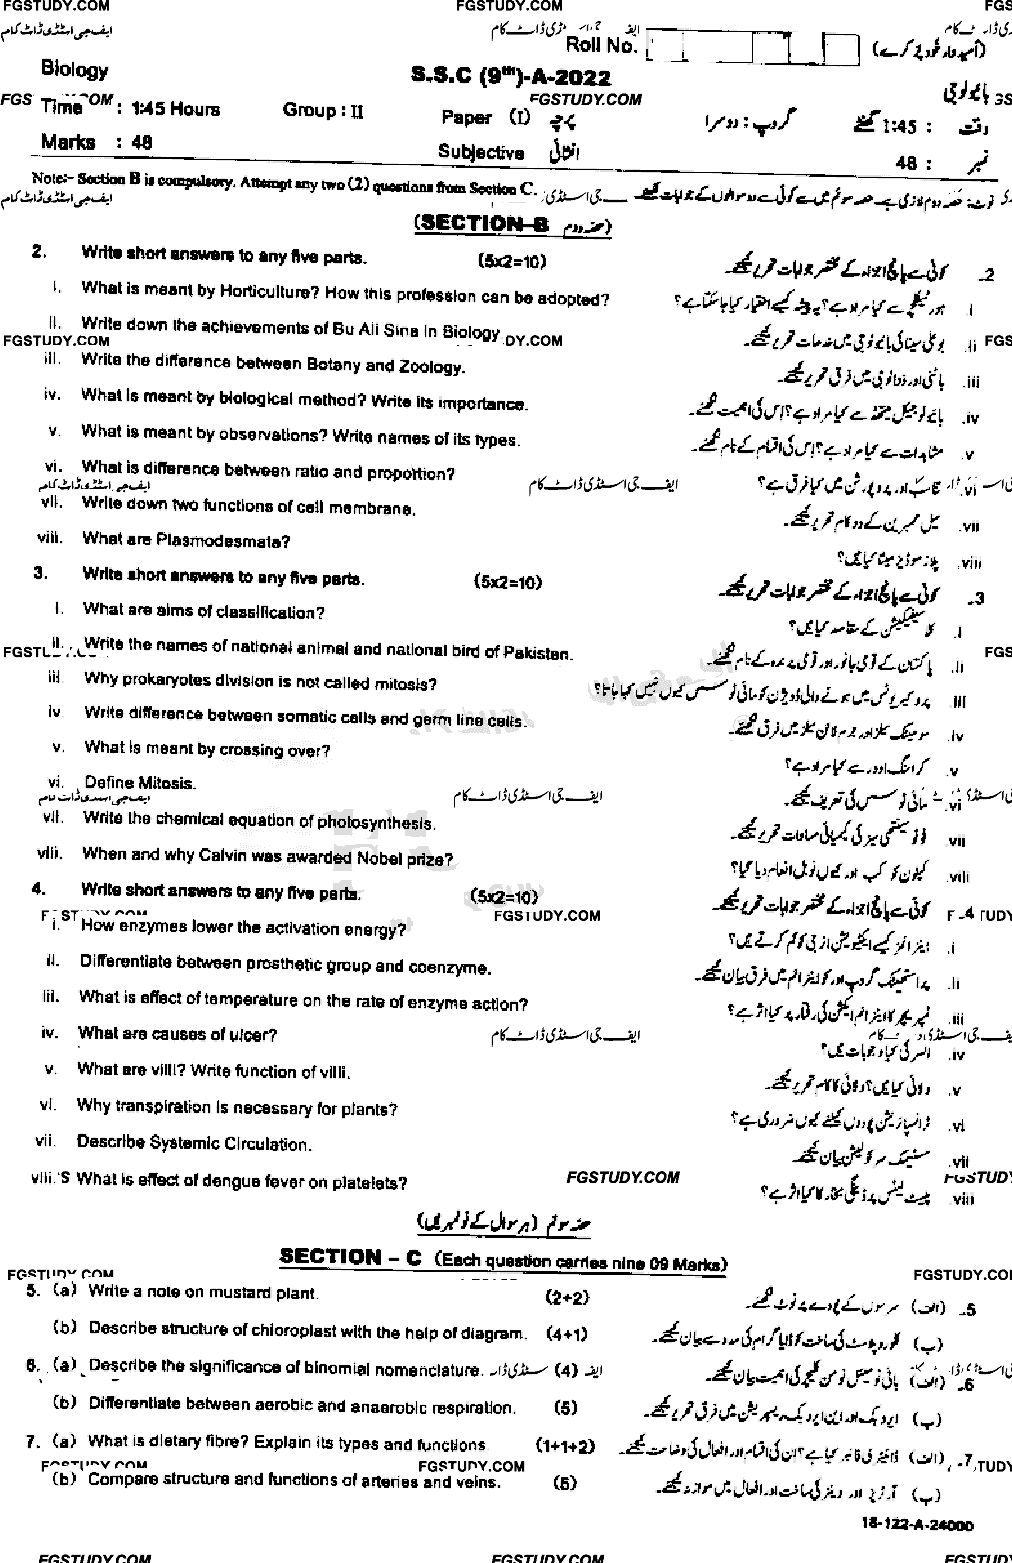 FGSTUDY.COM FGSTUDY.COM FGS
ایف جی اسٹڈی ڈاٹ کام
Roll No. (امیدوار خود پُر کرے)
Biology S.S.C (9th)-A-2022 بائیولوجی
FGS OM FGSTUDY.COM GS
Time : 1:45 Hours Group : II Paper (I) پرچہ گروپ : دوسرا وقت : 1:45 گھنٹے
Marks : 48 Subjective انشائی نمبر : 48
Note:- Section B is compulsory. Attempt any two (2) questions from Section C. نوٹ: حصہ دوم لازمی ہے۔ حصہ سوئم میں سے کوئی سے دو سوالوں کے جوابات لکھیئے۔
ایف جی اسٹڈی ڈاٹ کام جی اسٹڈی
(SECTION-B حصہ دوم)
2. Write short answers to any five parts. (5x2=10) 2۔ کوئی سے پانچ اجزاء کے مختصر جوابات تحریر کیجئے۔
i. What is meant by Horticulture? How this profession can be adopted? i. ہورٹیکلچر سے کیا مراد ہے؟ یہ پیشہ کیسے اختیار کیا جا سکتا ہے؟
ii. Write down the achievements of Bu Ali Sina in Biology ii. بو علی سینا کی بائیولوجی میں خدمات تحریر کیجئے۔
FGSTUDY.COM DY.COM FGS
iii. Write the difference between Botany and Zoology. iii. باٹنی اور زوالوجی میں فرق تحریر کیجئے۔
iv. What is meant by biological method? Write its importance. iv. بائیولوجیکل میتھڈ سے کیا مراد ہے؟ اس کی اہمیت لکھئے۔
v. What is meant by observations? Write names of its types. v. مشاہدات سے کیا مراد ہے؟ اس کی اقسام کے نام لکھئے۔
vi. What is difference between ratio and proportion? vi. تناسب اور پروپورشن میں کیا فرق ہے؟
ایف جی اسٹڈی ڈاٹ کام ایف جی اسٹڈی ڈاٹ کام
vii. Write down two functions of cell membrane. vii. سیل ممبرین کے دو کام تحریر کیجئے۔
viii. What are Plasmodesmata? viii. پلازموڈیزمیٹا کیا ہیں؟
3. Write short answers to any five parts. (5x2=10) 3۔ کوئی سے پانچ اجزاء کے مختصر جوابات تحریر کیجئے۔
i. What are aims of classification? i. کلاسیفیکیشن کے مقاصد کیا ہیں؟
ii. Write the names of national animal and national bird of Pakistan. ii. پاکستان کے قومی جانور اور قومی پرندہ کے نام لکھئے۔
iii. Why prokaryotes division is not called mitosis? iii. پروکیریوٹس میں ہونے والی ڈویژن کو مائی ٹوسس کیوں نہیں کہا جاتا؟
iv. Write difference between somatic cells and germ line cells. iv. سومیٹک سیلز اور جرم لائن سیلز میں فرق لکھئے۔
v. What is meant by crossing over? v. کراسنگ اوور سے کیا مراد ہے؟
vi. Define Mitosis. vi. مائی ٹوسس کی تعریف کیجئے۔
ایف جی اسٹڈی ڈاٹ کام ایف جی اسٹڈی ڈاٹ کام
vii. Write the chemical equation of photosynthesis. vii. فوٹوسینتھی سیز کی کیمیائی مساوات تحریر کیجئے۔
viii. When and why Calvin was awarded Nobel prize? viii. کیلون کو کب اور کیوں نوبل انعام دیا گیا؟
4. Write short answers to any five parts. (5x2=10) 4۔ کوئی سے پانچ اجزاء کے مختصر جوابات تحریر کیجئے۔
FGSTUDY.COM
i. How enzymes lower the activation energy? i. اینزائمز کیسے ایکٹیویشن انرجی کو کم کرتے ہیں؟
ii. Differentiate between prosthetic group and coenzyme. ii. پراستھیٹک گروپ اور کو اینزائم میں فرق بیان کیجئے۔
iii. What is effect of temperature on the rate of enzyme action? iii. ٹمپریچر کا اینزائم ایکشن کی رفتار پر کیا اثر ہے؟
iv. What are causes of ulcer? ایف جی اسٹڈی ڈاٹ کام iv. السر کی کیا وجوہات ہیں؟
v. What are villi? Write function of villi. v. ولائی کیا ہیں؟ ولائی کا کام تحریر کیجئے۔
vi. Why transpiration is necessary for plants? vi. ٹرانسپائریشن پودوں کیلئے کیوں ضروری ہے؟
vii. Describe Systemic Circulation. vii. سسٹمیک سرکولیشن بیان کیجئے۔
viii. What is effect of dengue fever on platelets? FGSTUDY.COM FGSTUD viii. پلیٹ لیٹس پر ڈینگی بخار کا کیا اثر ہے؟
حصہ سوئم (ہر سوال کے نو نمبر ہیں)
SECTION – C (Each question carries nine 09 Marks)
FGSTUDY.COM FGSTUDY.COM
5. (a) Write a note on mustard plant. (2+2) 5۔ (الف) سرسوں کے پودے پر نوٹ لکھئے۔
(b) Describe structure of chloroplast with the help of diagram. (4+1) (ب) کلوروپلاسٹ کی ساخت کو ڈایاگرام کی مدد سے بیان کیجئے۔
6. (a) Describe the significance of binomial nomenclature. (4) 6۔ (الف) بائی نومیئل نومن کلیچر کی اہمیت بیان کیجئے۔
(b) Differentiate between aerobic and anaerobic respiration. (5) (ب) ایروبک اور این ایروبک ریسپریشن میں فرق تحریر کیجئے۔
7. (a) What is dietary fibre? Explain its types and functions. (1+1+2) 7۔ (الف) ڈائیٹری فائبر کیا ہے؟ ان کی اقسام اور افعال کی وضاحت کیجئے۔
FGSTUDY.COM FGSTUDY.COM TUDY
(b) Compare structure and functions of arteries and veins. (5) (ب) آرٹریز اور وینز کی ساخت اور افعال میں موازنہ کیجئے۔
18-122-A-24000
FGSTUDY.COM FGSTUDY.COM FGSTUD